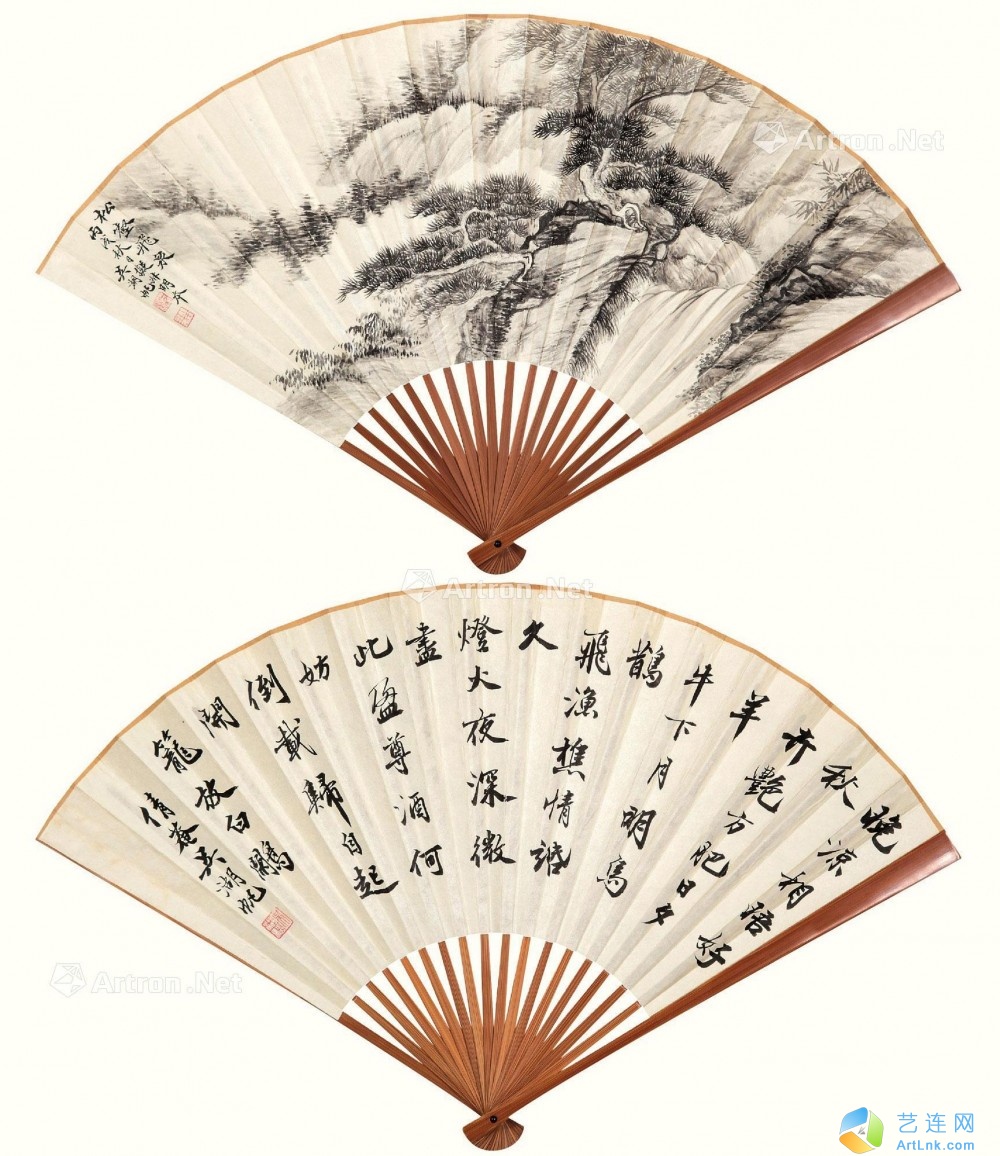 松壑飛泉
丙戌秋日吳湖帆
晚涼相晤好
秋
卉艷方肥日夕
羊
牛下月明烏
鵲
飛漁樵情
久
燈火夜深微
盡
此盈尊酒何
妨
倒載歸自起
開
籠放白鷴
倩菴吳湖帆
Artron.Net
Artron.Net
Artron.Net
艺连网
ArtLnk.com